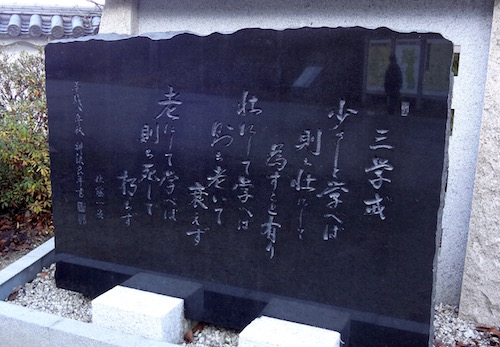 三学戒
少にして学べば
則ち壮にして
為すこと有り
壮にして学べば
則ち老いて
衰えず
老にして学べば
則ち死して
朽ちず
佐藤一斎